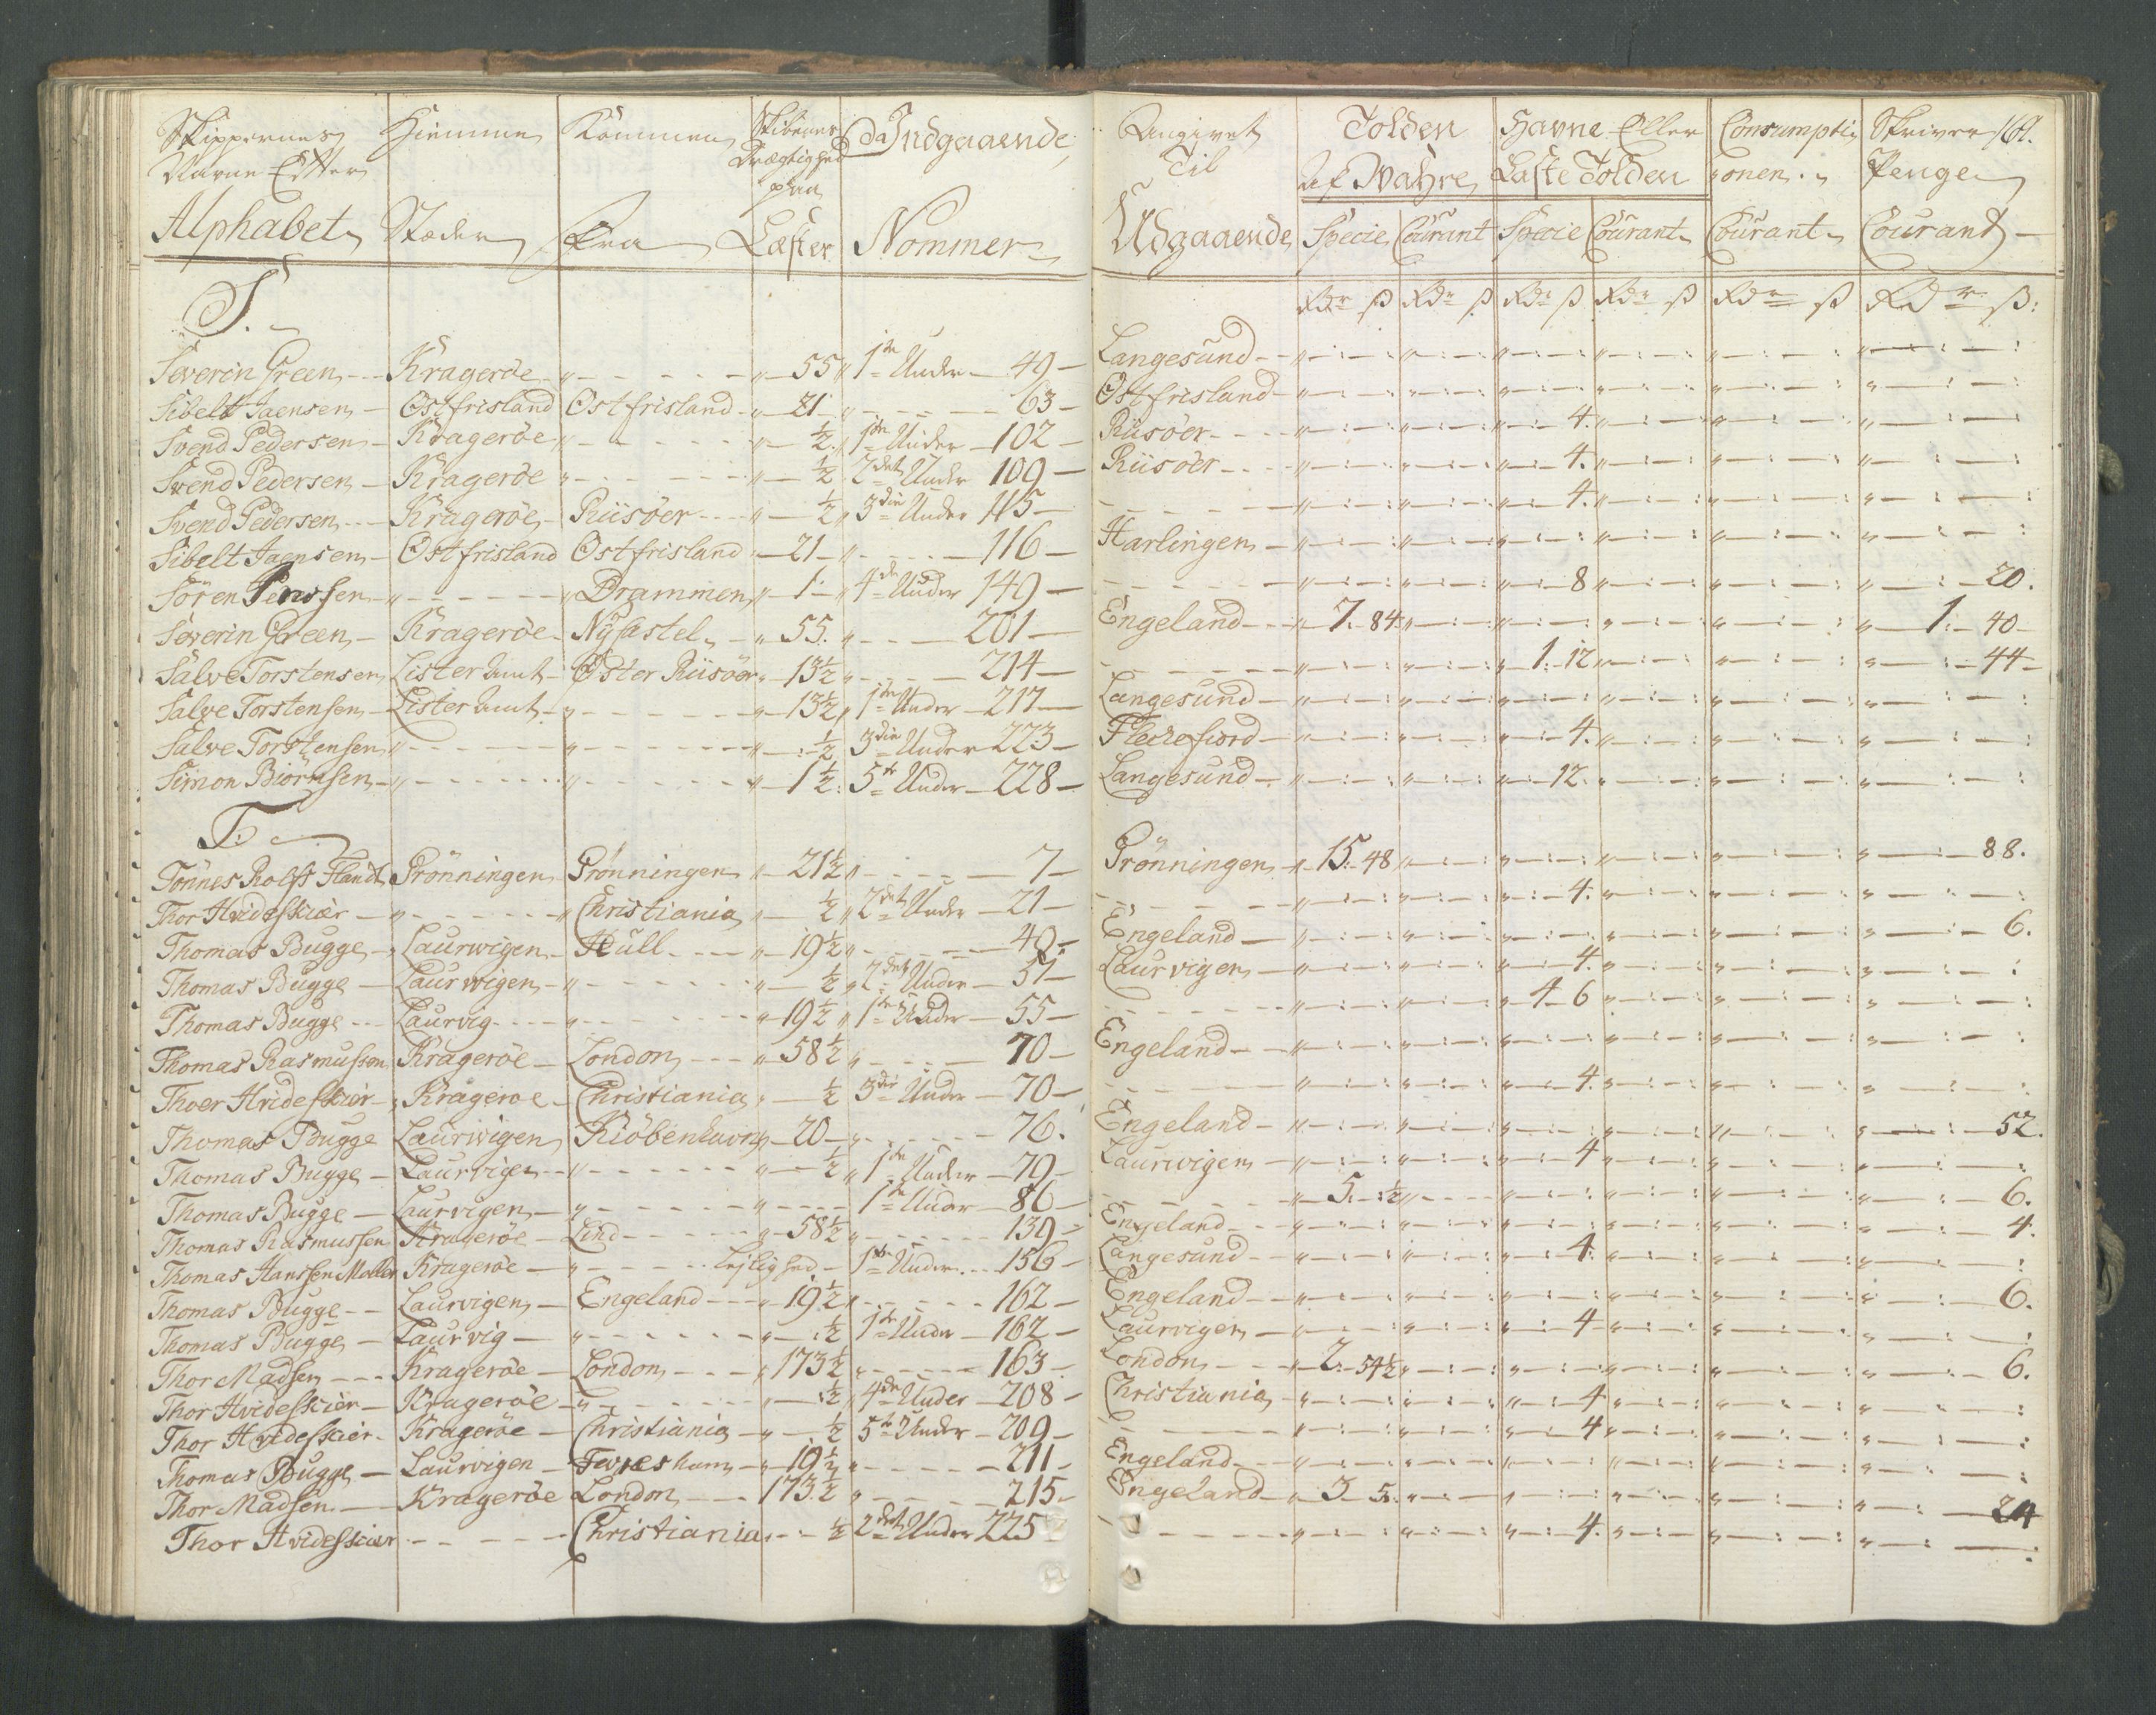 Skippernes Hiemme Kommen Skibenes Da Indgaaende Angivet Tolden Havne Eller Consumpti Skriver 161.
Navne Efter Drægtighed Til af Wahre Laste Tolden onen Penge
paa
Alphabet Stæder Fra Læster Nommer Udgaaende Specie Courant Specie Courant Courant Courant
S. Rdr ß Rdr ß Rdr ß Rdr ß Rdr ß Rdr ß:
Severin Green Kragerøe 55 1te Under 49 Langesund
Sibelt Jaensen Ostfrisland Ostfrisland 21 63 Ostfrisland
Svend Pedersen Kragerøe ½ 1te Under 102 Riisöer 4.
Svend Pedersen Kragerøe ½ 2det Under 109 Riisöer 4.
Svend Pedersen Kragerøe Riisöer ½ 3die Under 115 4.
Sibelt Jaensen Ostfrisland Ostfrisland 21 116 Harlingen
Sören Jenssen Drammen 1 4de Under 149 8 20.
Severin Green Kragerøe Nÿcastel 55. 201 Engeland 7. 84 1. 40
Salve Torstensen Lister Amt Öster Riisöer 13½ 214 1. 12 44
Salve Torstensen Lister Amt 13½ 1te Under 217 Langesund
Salve Torstensen ½ 3die Under 223 Fleckefiord 4.
Simon Biörnsen 1½ 5te Under 228 Langesund 12.
T.
Tönnes Rolfs Prönningen Prönningen 21½ 7 Prönningen 15. 48 88.
Thor Hvideskiær Christiania ½ 2det Under 21 4.
Thomas Bugge Laurwigen Hull 19½ 49 Engeland 6.
Thomas Bugge Laurwigen ½ 2det Under 51 Laurvigen 4.
Thomas Bugge Laurvig 19½ 1te Under 55 4 6
Thomas Rasmussen Kragerøe London 58½ 70 Engeland
Thoer Hvideskier Kragerøe Christiania ½ 3die Under 70 4.
Thomas Bugge Laurwigen Kiöbenhavn 20 76. Engeland 52.
Thomas Bugge Laurvigen ½ 1te Under 79 Laurwigen 4
Thomas Bugge Laurvigen 1te Under 86 5. ½ 6.
Thomas Rasmussen Kragerøe Lind 58½ 139 Engeland 4.
Thomas Hanssen Møller Kragerøe Lejlighed 1te Under 156 Langesund 4.
Thomas Bugge Laurvigen Engeland 19½ 162 Engeland 6.
Thomas Bugge Laurvig ½ 1te Under 162 Laurvigen 4
Thor Madsen Kragerøe London 173½ 163 London 2. 54½ 6.
Thor Hvideskier Kragerøe ½ 4de Under 208 Christiania 4
Thor Hvideskier Kragerøe Christiania ½ 5te Under 209 4
Thomas Bugge Laurvigen 19½ 211 Engeland
Thor Madsen Kragerøe London 173½ 215 Engeland 3 5. 24
Thor Hvideskier Christiania ½ 2det Under 225 4.